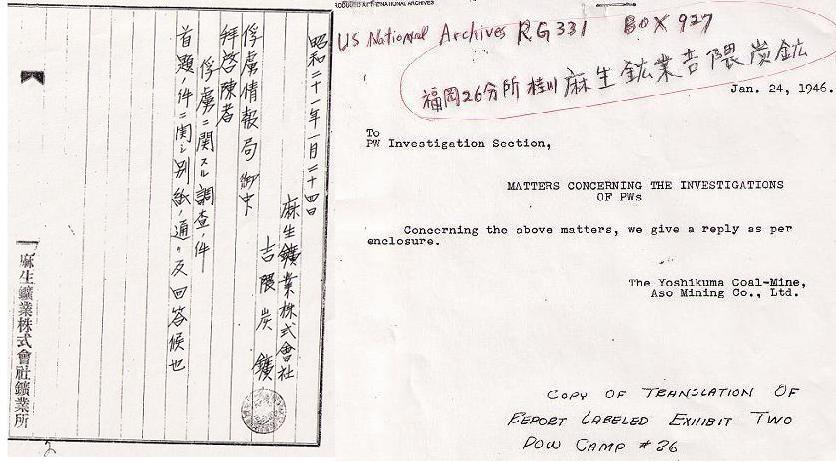 昭和二十一年一月二十四日
麻生鑛業株式會社
吉隈炭鑛
俘虜情報局 御中
拝啓陳者
俘虜ニ関スル調査ノ件
首題ノ件ニ関シ別紙ノ通リ及回答候也
麻生鑛業株式會社鑛業所
RODUCED AT THE NATIONAL ARCHIVES
US National Archives RG331 BOX 927
福岡26分所 桂川 麻生鉱業吉隈炭鉱
Jan. 24, 1946.
To
PW Investigation Section,
MATTERS CONCERNING THE INVESTIGATIONS
OF PWs
Concerning the above matters, we give a reply as per
enclosure.
The Yoshikuma Coal-Mine,
Aso Mining Co., Ltd.
COPY OF TRANSLATION OF
REPORT LABELED EXHIBIT TWO
POW CAMP #26